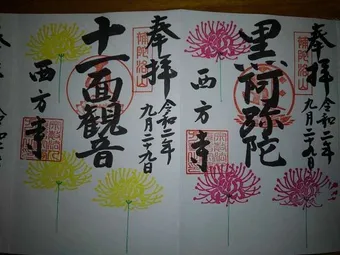 奉拝
令和二年
九月二十九日
黒阿弥陀
西方寺
奉拝
令和二年
九月二十九日
十一面観音
西方寺
補陀洛山
補陀洛山